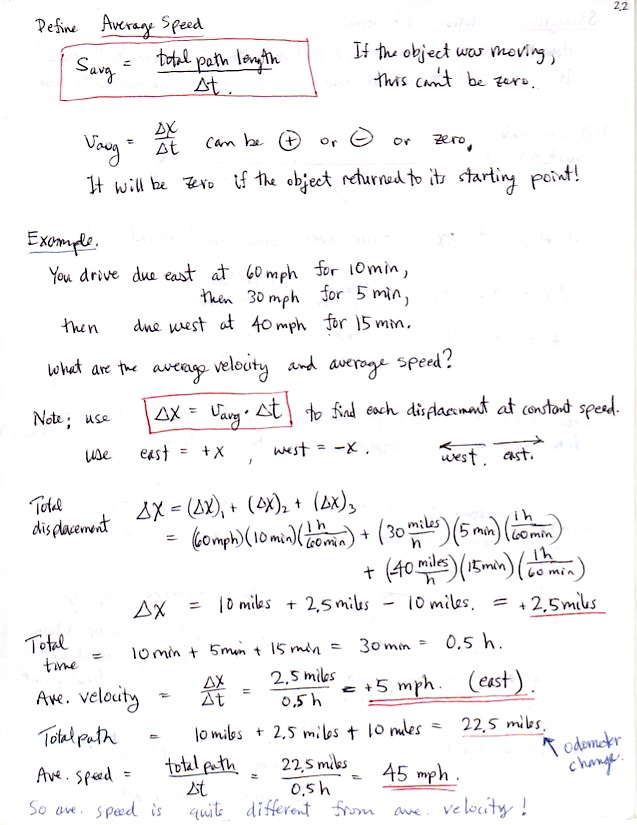 2.2
Define Average Speed
Savg = total path length / Δt.
If the object was moving,
this can't be zero.
Vavg = Δx/Δt can be ⊕ or ⊖ or zero.
It will be zero if the object returned to its starting point!
Example.
You drive due east at 60 mph for 10 min,
then 30 mph for 5 min,
then due west at 40 mph for 15 min.
What are the average velocity and average speed?
Note: use Δx = Vavg · Δt to find each displacement at constant speed.
use east = +x, west = -x. west. east.
Total displacement Δx = (Δx)₁ + (Δx)₂ + (Δx)₃
= (60mph)(10min)(1h/60min) + (30 miles/h)(5min)(1h/60min)
+ (-40 miles/h)(15min)(1h/60min)
Δx = 10 miles + 2.5 miles - 10 miles. = +2.5 miles
Total time = 10 min + 5 min + 15 min = 30 min = 0.5 h.
Ave. velocity = Δx/Δt = 2.5 miles/0.5 h = +5 mph. (east).
Total path = 10 miles + 2.5 miles + 10 miles = 22.5 miles.
odometer change.
Ave. speed = total path/Δt = 22.5 miles/0.5 h = 45 mph.
So ave. speed is quite different from ave. velocity!